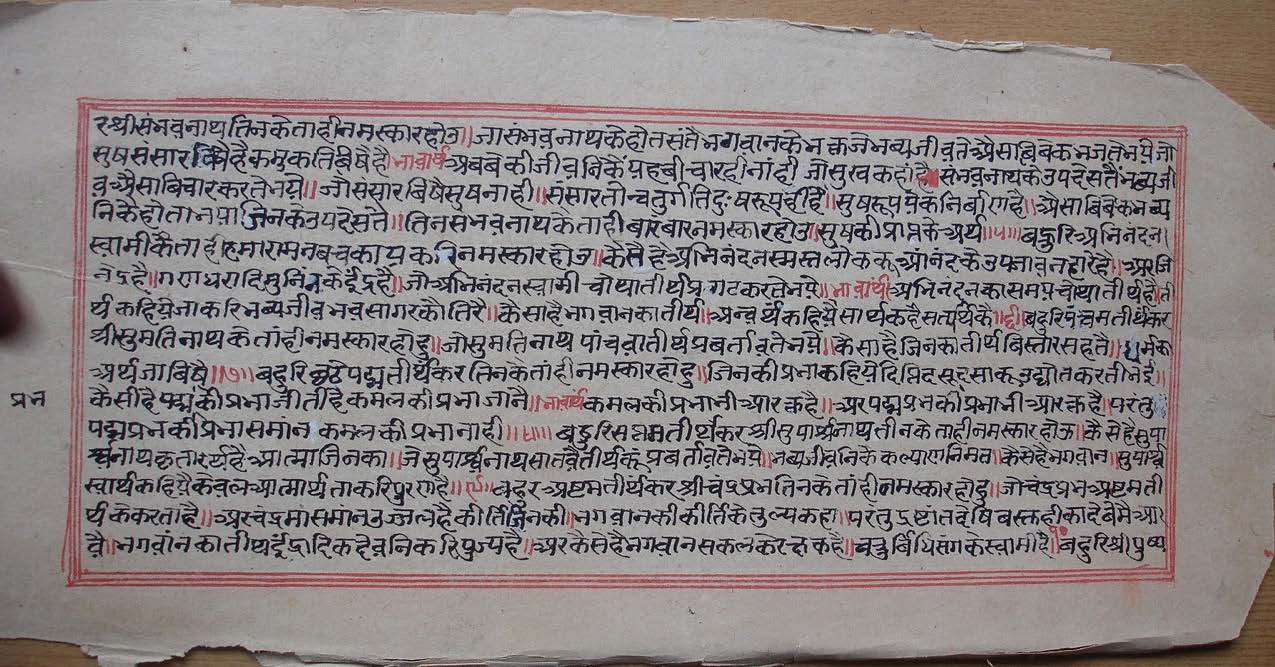 रश्रीसंभवनाथतिनकेताहीनमस्कारहोउ॥जासंभवनाथकेहोतसंतैभगवानकेभक्तजेभव्यजीवतेऐसाविवेकभजतेभये जो
सुषसंसारविषैहैकमुकतिविषैहै॥भावार्थ॥अबबेकीजीवनिकैयहबीचारहीनांही जोसुखकहांहै संभवनाथकेउपदेसतैभव्यजी
वऐसाबिचारकरतेभये॥जोसंसारबिषैसुषनाही॥संसारतोचतुर्गतिदुःषरूपहीहै॥सुषरूपयेकनिर्बाणहै॥ऐसाबिबेकभव्य
निकैहोताभया जिनकेउपदेसते॥तिनसंभवनाथकेताहीबारंबारनमस्कारहोउ॥सुषकीप्राप्तकेअर्थ॥५॥बहुरिअभिनंदन
स्वामीकैताहीहमारामनबचकायकरिनमस्कारहोउ॥कैसेहैअभिनंदनस्मस्तलोककूआनंदकेउपजावनहारेहै॥अरजि
नेंद्रहै॥गणधरादिमुनिनकेइंद्रहै॥जोअभिनंदनस्वामी चोथातीर्थप्रगटकरतेभये॥भावार्थ॥अभिनंदनकासमयचोथातीर्थहै॥ती
र्थकहियेजाकरिभव्यजीवभवसागरकौतिरै॥कैसाहैभगवानकातीर्थ॥अन्वर्थकहियेसार्थकहैसत्यार्थकै॥६॥बहुरिपंचमतीर्थंकर
श्रीसुमतिनाथकेतांहीनमस्कारहोहु॥जोसुमतिनाथ पांचवातीर्थप्रबर्तावतेभये॥कैसाहैजिनकातीर्थबिस्तारसहतहै॥धर्मका
अर्थजाबिषै॥७॥बहुरिछठेपद्मतीर्थंकरतिनकैतांहीनमस्कारहोहु॥जिनकीप्रभाकहिये
प्रभ
कैसीहैपद्मकीप्रभाजीतीहैकमलकीप्रभाजानै॥भावार्थ॥कमलकीप्रभानीआरकहै॥अरपद्मप्रभकीप्रभानीआरकहै॥परंतु
पद्मप्रभकीप्रभासमान कमलकीप्रभानाही॥८॥बहुरिसप्तमतीर्थंकरश्रीसुपार्श्वनाथतीनकेताहीनमस्कारहोउ॥कैसेहैसुपा
र्श्वनाथकृतारर्थहैआत्माजिनका॥जेसुपार्श्वनाथसातवैतीर्थंकंप्रबर्तावतेभये॥भव्यजीवनिकेकल्याणनिमत॥कैसेहैभगवान॥सुपार्श्व
स्वार्थकहियैकेवलआत्मार्थताकरिपुरणहै॥९॥बहुरअष्टमतीर्थंकरश्रीचंद्रप्रभतिनकेतांहीनमस्कारहोहु॥जोचंद्रप्रभअष्टमती
र्थकेकरताहै॥अरचंद्रमासमानउज्जलहैकीर्तिजिनकी॥भगवानकीकीर्तिकेतुल्यकहा॥परंतुद्रष्टांत
वै॥भगवांनकातीर्थइंद्रादिकदेवनिकरिपुज्यहै॥अरकैसेहैभगवान चतुर्बिधिसंगकेस्वामीहै॥बहुरिश्रीपुष्प